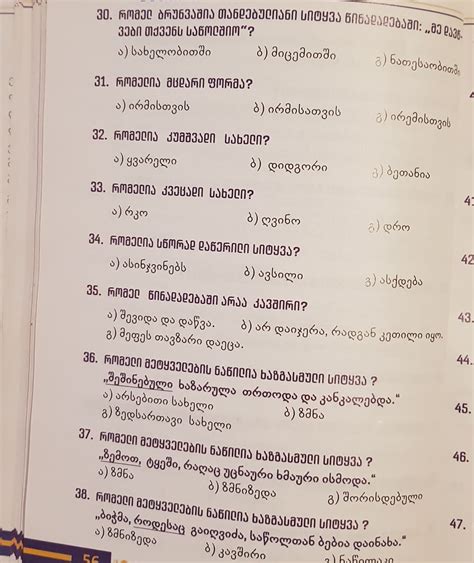 30. რომელ ბრუნვაშია თანდებულიანი სიტყვა წინადადებაში: „მე დავწ-
ვები თქვენს საწოლშიო“?
ა) სახელობითში ბ) მიცემითში გ) ნათესაობითში
31. რომელია მცდარი ფორმა?
ა) ირმისთვის ბ) ირმისათვის გ) ირემისთვის
32. რომელია კუმშვადი სახელი?
ა) ყვარელი ბ) დიდგორი გ) ბეთანია
33. რომელია კვეცადი სახელი?
41
ა) რკო ბ) ღვინო გ) დრო
34. რომელია სწორად დაწერილი სიტყვა?
42
ა) ასინჯვინებს ბ) ავსილი გ) ასქდება
35. რომელ წინადადებაში არაა კავშირი?
43.
ა) შევიდა და დაწვა. ბ) არ დაიჯერა, რადგან კეთილი იყო.
გ) მეფეს თავზარი დაეცა.
44.
36. რომელი მეტყველების ნაწილია ხაზგასმული სიტყვა ?
„შეშინებული ხაზარულა თრთოდა და კანკალებდა.“
ა) არსებითი სახელი ბ) ზმნა
45.
გ) ზედსართავი სახელი
37. რომელი მეტყველების ნაწილია ხაზგასმული სიტყვა ?
46.
„ზემოთ, ტყეში, რაღაც უცნაური ხმაური ისმოდა.“
ა) ზმნა ბ) ზმნიზედა გ) შორისდებული
38. რომელი მეტყველების ნაწილია ხაზგასმული სიტყვა ?
47.
„ბიჭმა, როდესაც გაიღვიძა, საწოლთან ბებია დაინახა.“
ა) ზმნიზედა ბ) კავშირი გ) ნაწილაკი
56